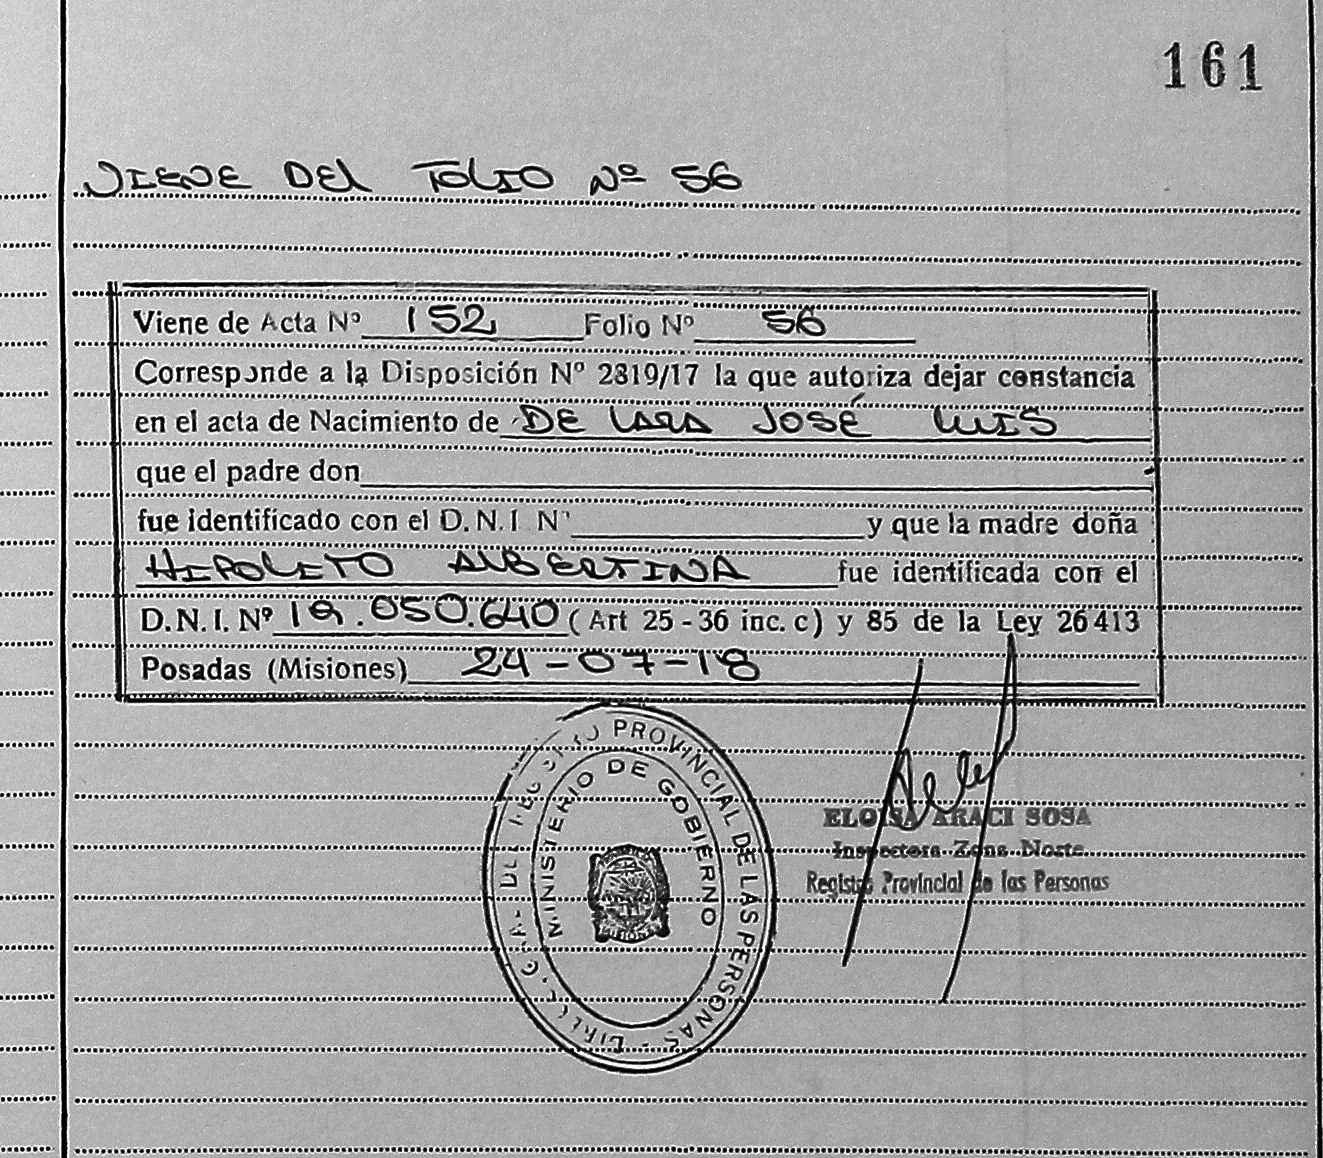 161
VIENE DEL FOLIO Nº 56
Viene de Acta Nº 152 Folio Nº 56
Corresponde a la Disposición Nº 2819/17 la que autoriza dejar constancia
en el acta de Nacimiento de DE LARA JOSÉ LUIS
que el padre don
fue identificado con el D.N.I. Nº y que la madre doña
HIPOLITO ALBERTINA fue identificada con el
D.N.I. Nº 19.050.640 (Art 25-36 inc. c) y 85 de la Ley 26413
Posadas (Misiones) 24-07-18
PROVINCIAL DE LAS PERSONAS
MINISTERIO DE GOBIERNO
ELOISA ARACI SOSA
Inspectora Zona Norte
Registro Provincial de las Personas